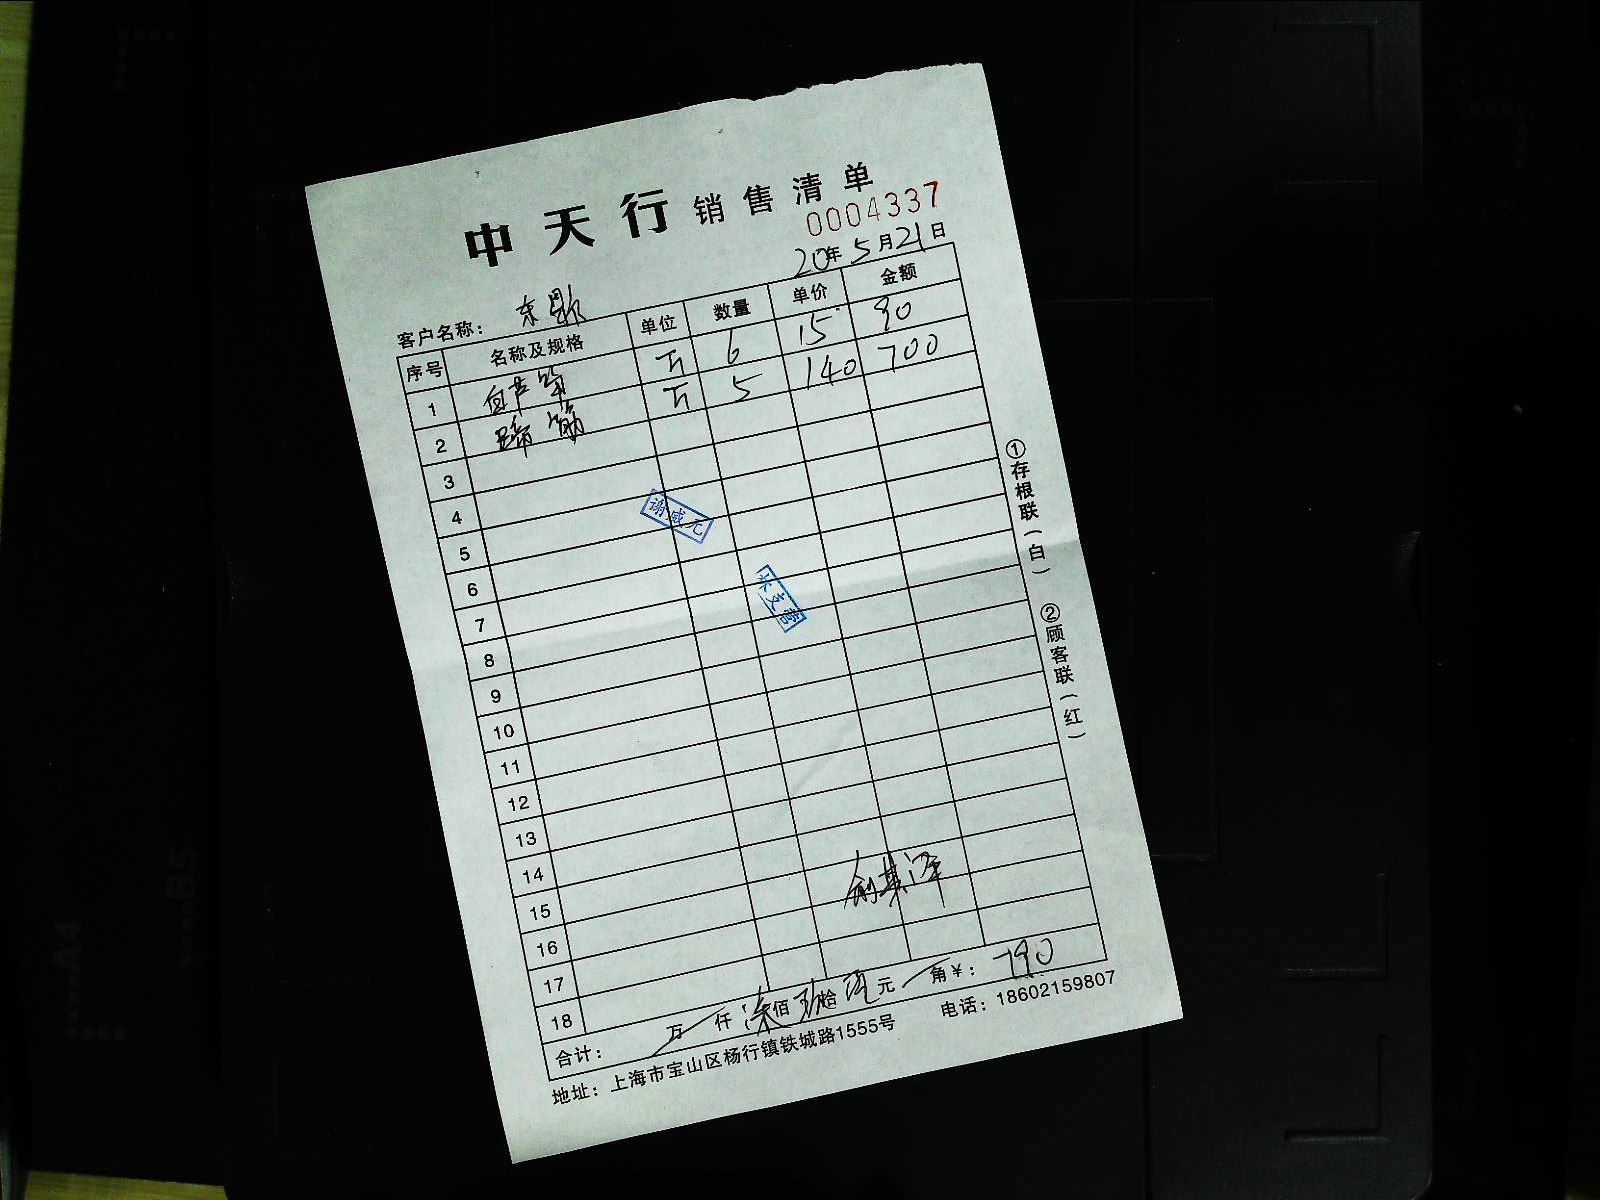 中天行 销售清单
0004337
20年5月21日
客户名称：东
序号 名称及规格 单位 数量 单价 金额
1 白芦笋 斤 6 15 90
2 蹄筋 斤 5 140 700
3
4
5
6
7
8
9
10
11
12
13
14
15
16
17
18
谢威元
合计： 万 仟 柒佰玖拾 元 角￥：790
地址：上海市宝山区杨行镇铁城路1555号 电话：18602159807
①存根联（白） ②顾客联（红）